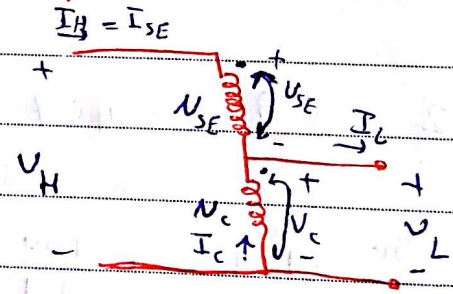 I_H = I_SE
+ +
N_SE V_SE
- I_L
V_H + +
N_C V_C V_L
I_C
- - -